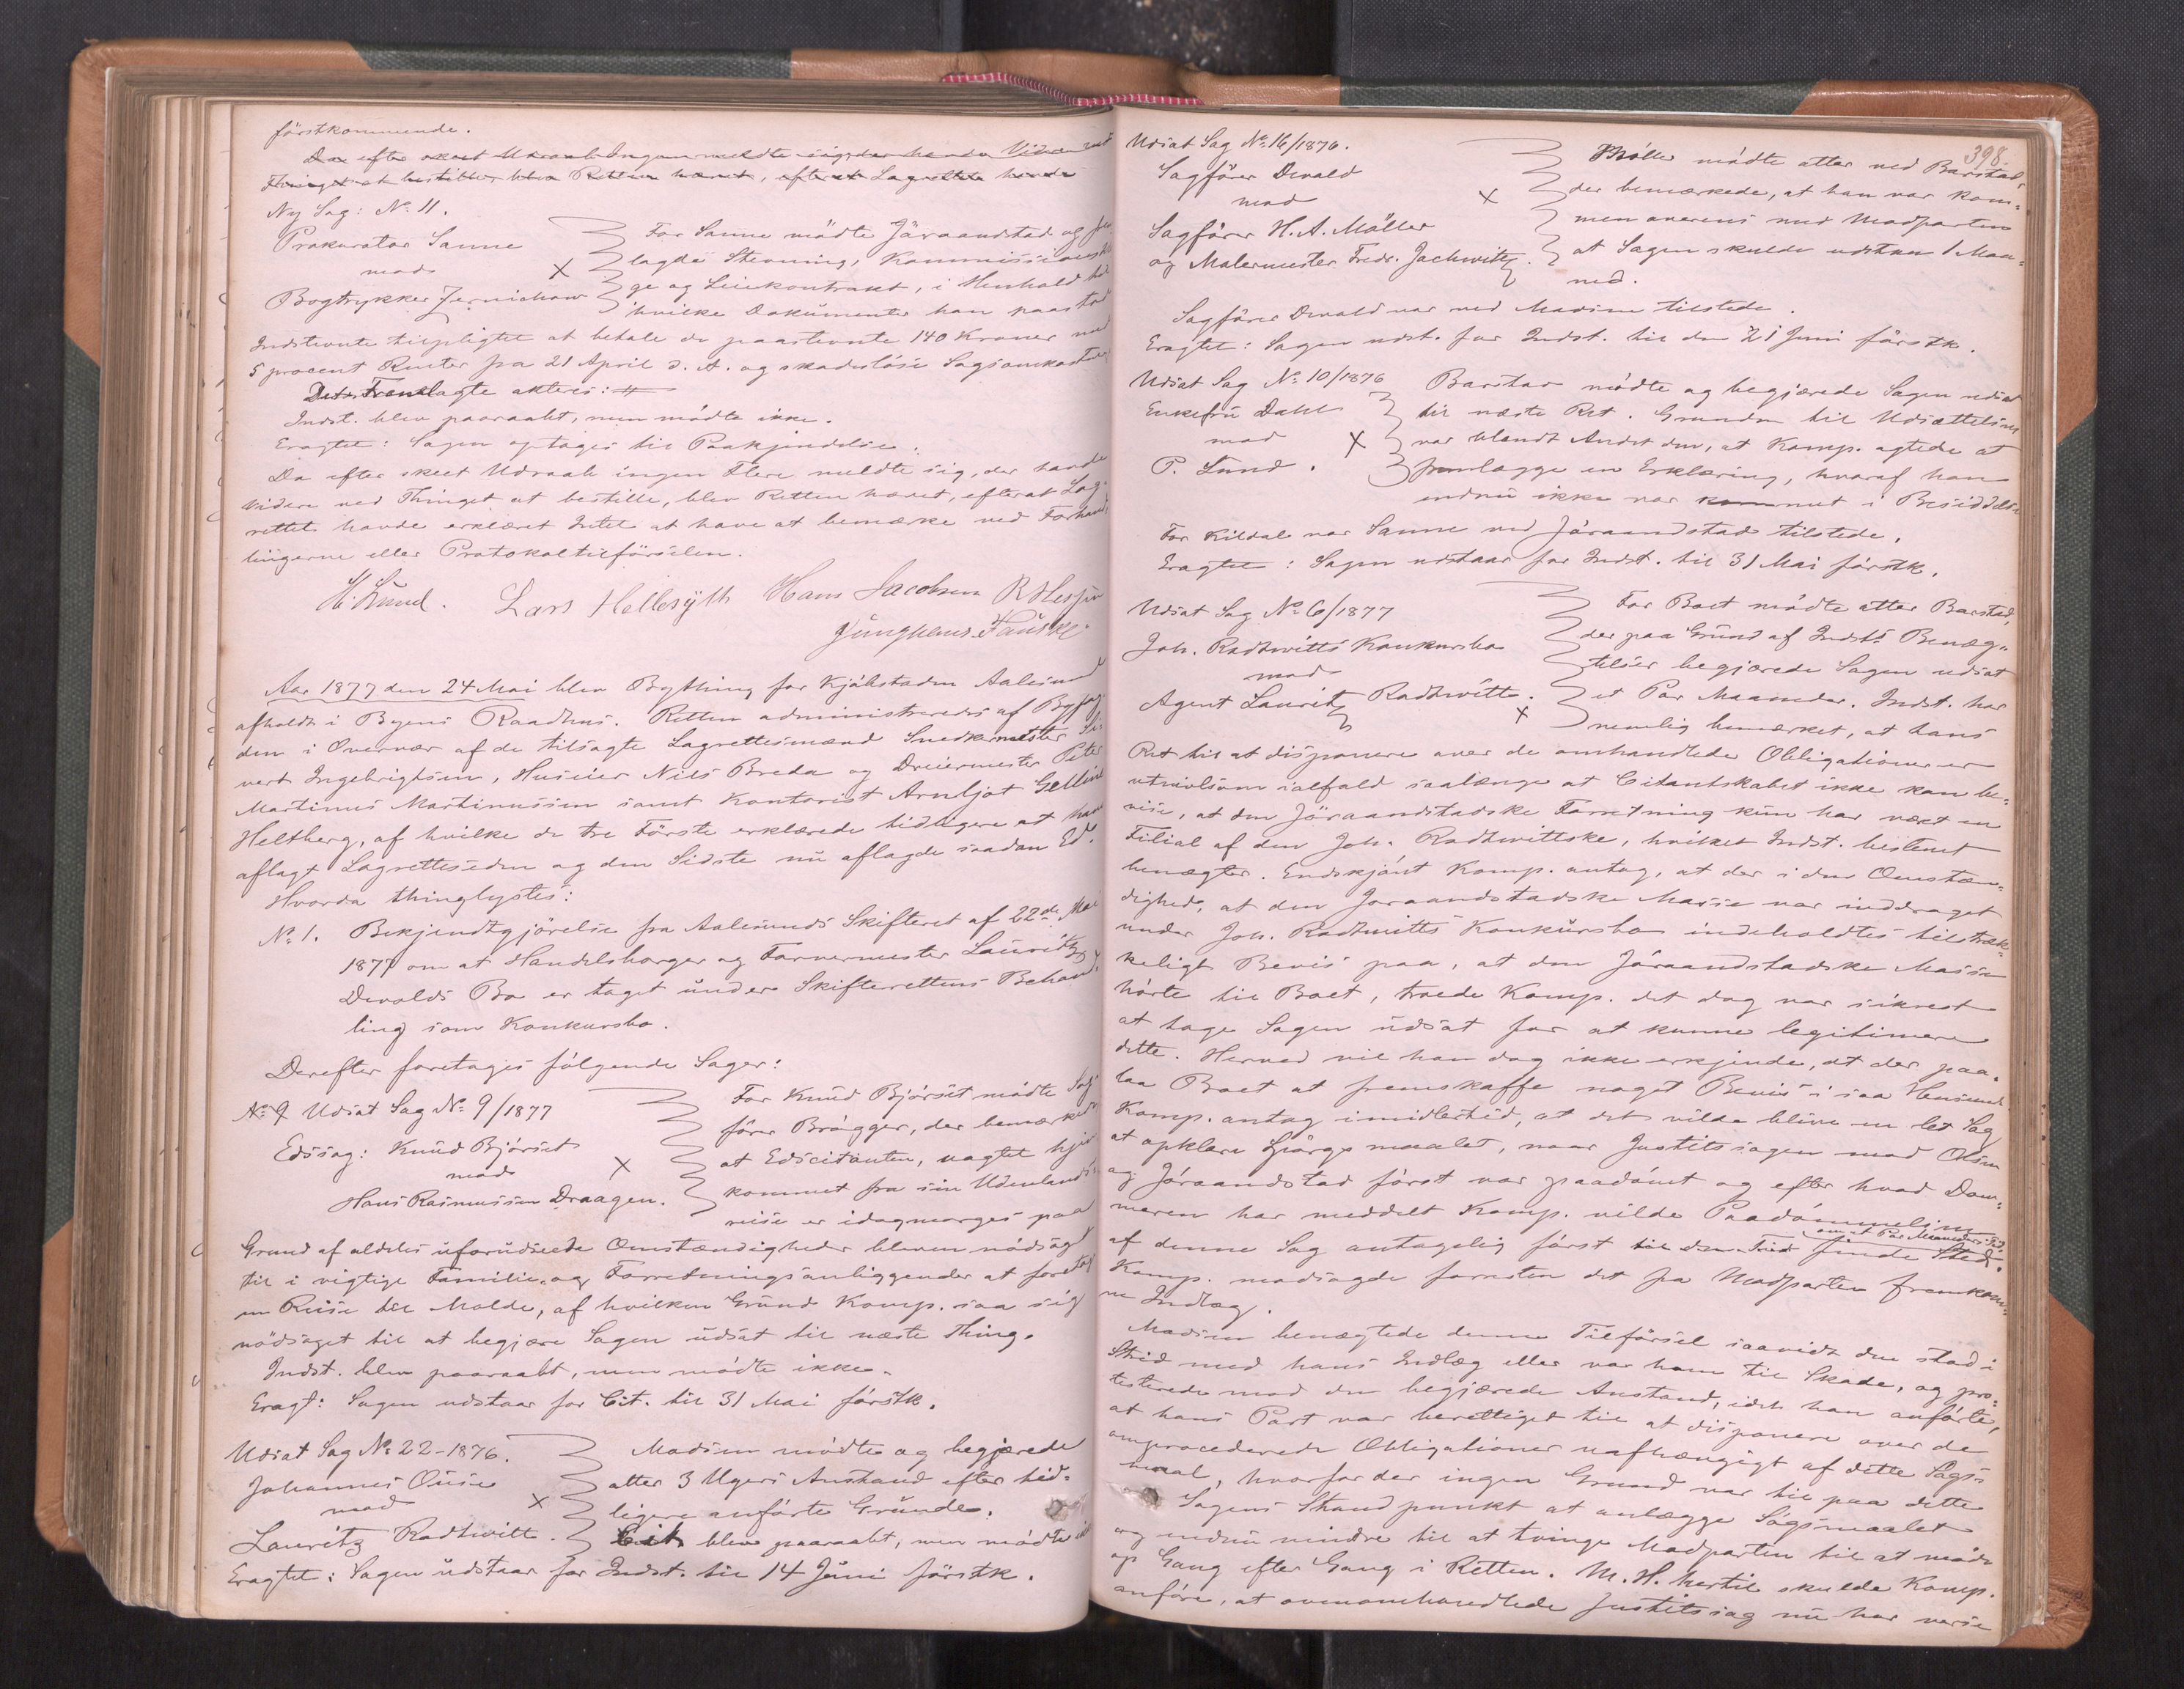 förstkommende.
Da efter skeet Udraab Ingen meldte sig, der havde Videre ved
Thinget at bestille, blev Retten hævet, efterat Lagrettet havde
Ny Sag: No 11.
Prokurator Sanne
mod
Bogtrykker Jernichow
X
For Sanne mödte Jöraandstad og frem
lagde Stevning, Kommissionskla
ge og Leiekontrakt, i Henhold til
hvilke Dokumenter han paastod
Indstevnte tilpligtet at betale de paastevnte 140 Kroner med
5 procent Renter fra 21 April d. A. og skadeslöse Sagsomkostninger
Det Fremlagte akteres:
Indst. blev paaraabt, men mödte ikke.
Eragtet: Sagen optages til Paakjendelse.
Da efter skeet Udraab ingen Flere meldte sig, der havde
Videre ved Thinget at bestille, blev Retten hævet, efterat Lag-
rettet havde erklæret Intet at have at bemærke ved Forhand-
lingerne eller Protokoltilförselen.
H. Lund. Lars Hellesyth Hans Jacobsen
Junghans. Hauske
Aar 1877 den 24 Mai blev Bything for Kjöbstaden Aalesund
afholdt i Byens Raadhus. Retten administreredes af Byfog-
den i Overvær af de tilsagte Lagrettesmænd Snedkermester Si-
vert Ingebrigtsen, Huseier Nils Breda og Dreiermester Peter
Martinus Martinussen samt Kontorist Arnljot Gelline
Heltberg, af hvilke de tre Förste erklærede tidligere at have
aflagt Lagretteseden og den Sidste nu aflagde saadan Ed.
Hvorda thinglystes:
No 1. Bekjendtgjörelse fra Aalesunds Skifteret af 22de Mai
1877 om at Handelsborger og Farvermester Lauritz
Devolds Bo er taget under Skifterettens Behand-
ling som Konkursbo.
Derefter foretages fölgende Sager:
No 9 Udsat Sag No 9/1877
Edssag: Knud Björset
mod
Hans Rasmussen Draagen.
X
For Knud Björset mödte Sag
förer Brögger, der bemærkede
at Edscitanten, uagtet hjem
kommet fra sin Udenlands-
reise er idagmorges paa
Grund af aldeles uforudseede Omstændigheder bleven nödsagt
til i vigtige Familie- og Forretningsanliggender at foretage
en Reise til Molde, af hvilken Grund Komp. saa sig
nödsaget til at begjære Sagen udsat til næste Thing.
Indst. blev paaraabt, men mödte ikke.
Eragt: Sagen udstaar for Cit. til 31 Mai förstk.
Udsat Sag No 22-1876.
Johannes Ouse
mod
Lauritz Rodtwitt.
X
Madsen mödte og begjærede
atter 3 Ugers Anstand efter tid-
ligere anförte Grunde.
Cit. blev paaraabt, men mödte ikke
Eragtet: Sagen udstaar for Indst. til 14 Juni förstk.
398.
Udsat Sag No 16/1876.
Sagförer Devold
mod
Sagförer H. A. Möller
og Malermester Fredr. Jachwitz.
X
Möller mödte atter ved Barstad,
der bemærkede, at han var kom-
men overens med Modparten
at Sagen skulde udstaa 1 Maa-
ned.
Sagförer Devold var ved Madsen tilstede.
Eragtet: Sagen udst. for Indst. til den 21 Juni förstk.
Udsat Sag No 10/1876
Enkefru Dahl
mod
P. Lund.
X
Barstad mödte og begjærede Sagen udsat
til næste Ret. Grunden til Udsættelsen
var blandt Andet den, at Komp. agtede at
fremlægge en Erklæring, hvoraf han
endnu ikke var kommet i Besiddelse
For Kildal var Sanne ved Jöraandstad tilstede.
Eragtet: Sagen udstaar for Indst. til 31 Mai förstk.
Udsat Sag No 6/1877
Joh. Rodtwitts Konkursbo
mod
Agent Lauritz Rodtwitt.
X
For Boet mödte atter Barstad,
der paa Grund af Indsts Benæg-
telser begjærede Sagen udsat
et Par Maaneder. Indst. har
nemlig bemærket, at hans
Ret til at disponere over de omhandlede Obligationer er
utvivlsom ialfald saalænge at Citantskabet ikke kan be-
vise, at den Jöraandstadske Forretning kun har været en
Filial af den Joh. Rodtwittske, hvilket Indst. bestemt
benægter. Endskjönt Komp. antog, at der i den Omstæn-
dighed, at den Joraandstadske Masse var inddraget
under Joh. Rodtwitts Konkursbo indeholdtes tilstræk-
keligt Bevis paa, at den Jöraandstadske Masse
hörte til Boet, troede Komp. det dog var sikrest
at tage Sagen udsat for at kunne legitimere
dette. Herved vil han dog ikke erkjende, at der paa-
laa Boet at fremskaffe noget Bevis i saa Henseende.
Komp. antog imidlertid, at det vilde blive en let Sag
at opklare Spörgsmaalet, naar Justitssagen mod Olsen
og Jöraandstad först var paadömt og efter hvad Dom-
meren har meddelt Komp. vilde Paadömmelsen
af denne Sag antagelig först til den Tid om et Par Maaneders Tid finde Sted.
Komp. modsagde forresten det fra Modparten fremkom-
ne Indlæg.
Madsen benægtede denne Tilförsel saavidt den stod i
Strid med hans Indlæg eller var ham til Skade, og pro-
testerede mod den begjærede Anstand, idet han anförte,
at hans Part var berettiget til at disponere over de
omprocederede Obligationer uafhængigt af dette Sags-
maal, hvorfor der ingen Grund var til paa dette
Sagens Standpunkt at anlægge Sagsmaalet
og endnu mindre til at tvinge Modparten til at möde
op Gang efter Gang i Retten. M. H. hertil skulde Komp.
anföre, at ovenomhandlede Justitssag nu har verse